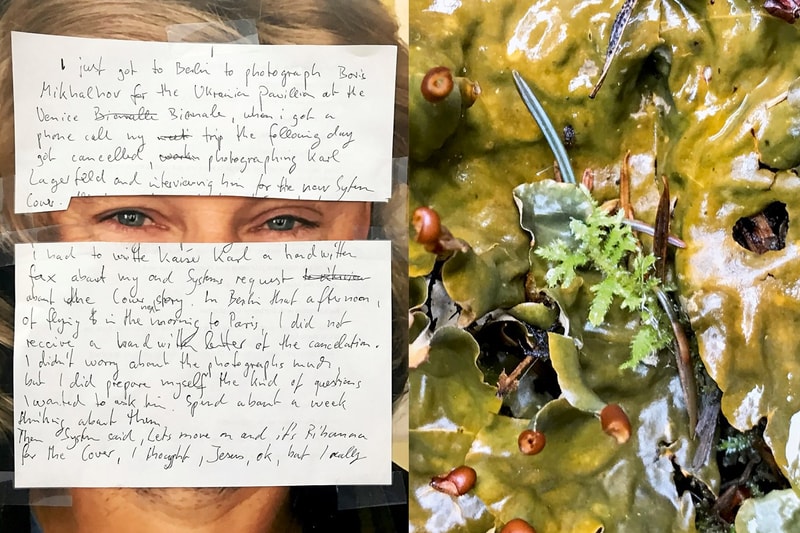 I just got to Berlin to photograph Boris
Mikhalhov for the Ukranian Pavillion at the
Venice Bionalle Bionale, when i got a
phone call my trip the following day
got cancelled, photographing Karl
Lagerfeld and interviewing him for the new System
Cover.
i had to write Kaiser Karl a handwritten
fax about my and Systems request
about the Cover story. In Berlin that afternoon,
of flying in the morning to Paris, I did not
receive a hand written letter of the cancelation.
I didn't worry about the photographs much
but I did prepare myself the kind of questions
I wanted to ask him. Spend about a week
thinking about them
Then System said, Lets move on and it's Rihanna
for the Cover, I thought, Jesus, ok, but I really